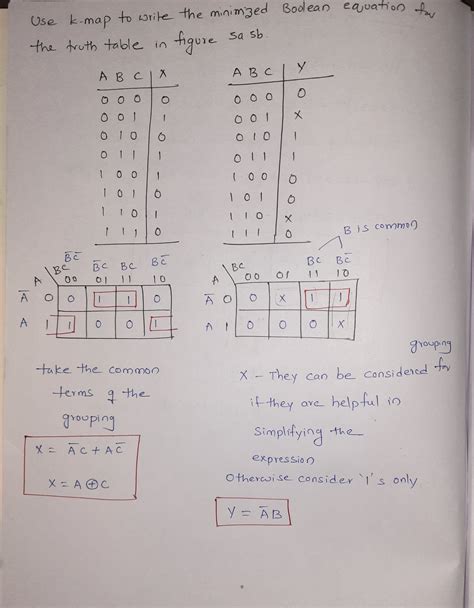 Use k-map to write the minimized Boolean equation for
the truth table in figure 5a 5b.
A B C X
0 0 0 0
0 0 1 1
0 1 0 0
0 1 1 1
1 0 0 1
1 0 1 0
1 1 0 1
1 1 1 0
A B C Y
0 0 0 0
0 0 1 X
0 1 0 1
0 1 1 1
1 0 0 0
1 0 1 0
1 1 0 X
1 1 1 0
B is common
B̅C̅ B̅C BC BC̅
A BC 00 01 11 10
A̅ 0 0 1 1 0
A 1 1 0 0 1
BC BC̅
A BC 00 01 11 10
A̅ 0 0 X 1 1
A 1 0 0 0 X
take the common
terms of the
grouping
X = A̅C + AC̅
X = A ⊕ C
grouping
X - They can be considered for
if they are helpful in
simplifying the
expression
Otherwise consider '1's only
Y = A̅B